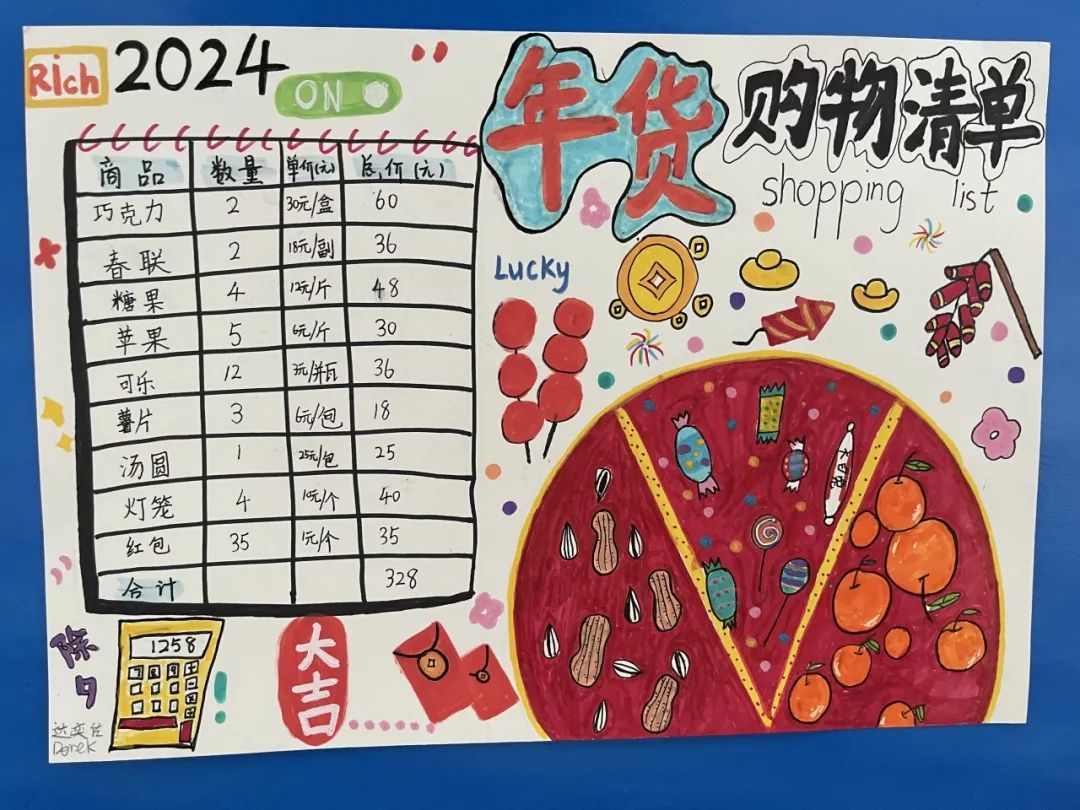 Rich 2024
ON
年货 购物清单
shopping list
商品 数量 单价(元) 总价(元)
巧克力 2 30元/盒 60
春联 2 18元/副 36
糖果 4 12元/斤 48
苹果 5 6元/斤 30
可乐 12 3元/瓶 36
薯片 3 6元/包 18
汤圆 1 25元/包 25
灯笼 4 10元/个 40
红包 35 1元/个 35
合计 328
Lucky
除夕
1258
大吉
Derek